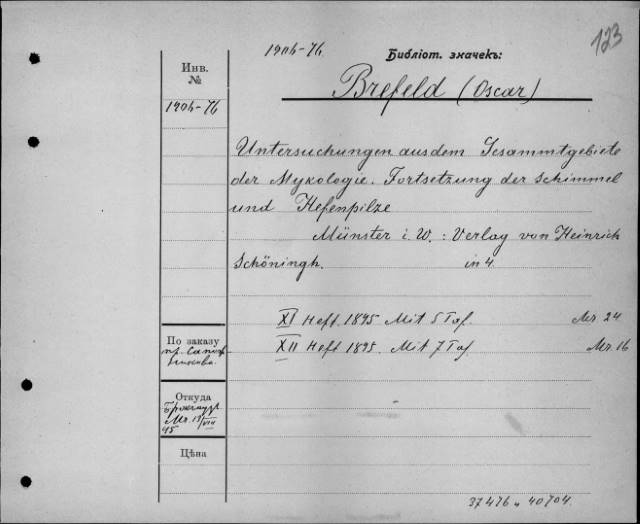 123
190ѣ-76.
Библіот. значекъ:
Brefeld (Oscar)
Инв.
№
190ѣ-76
Untersuchungen aus dem Gesammtgebiete
der Mykologie. Fortsetzung der Schimmel
und Hefenpilze
Münster i. W. : Verlag von Heinrich
Schöningh. in 4.
XI Heft. 1895 Mit 5 Taf. Mr. 24
XII Heft 1895. Mit 7 Taf Mr. 16
По заказу
пр. Сапож
никова.
Откуда
Mr. 13/VIII
95
Цѣна
37476 и 40704.